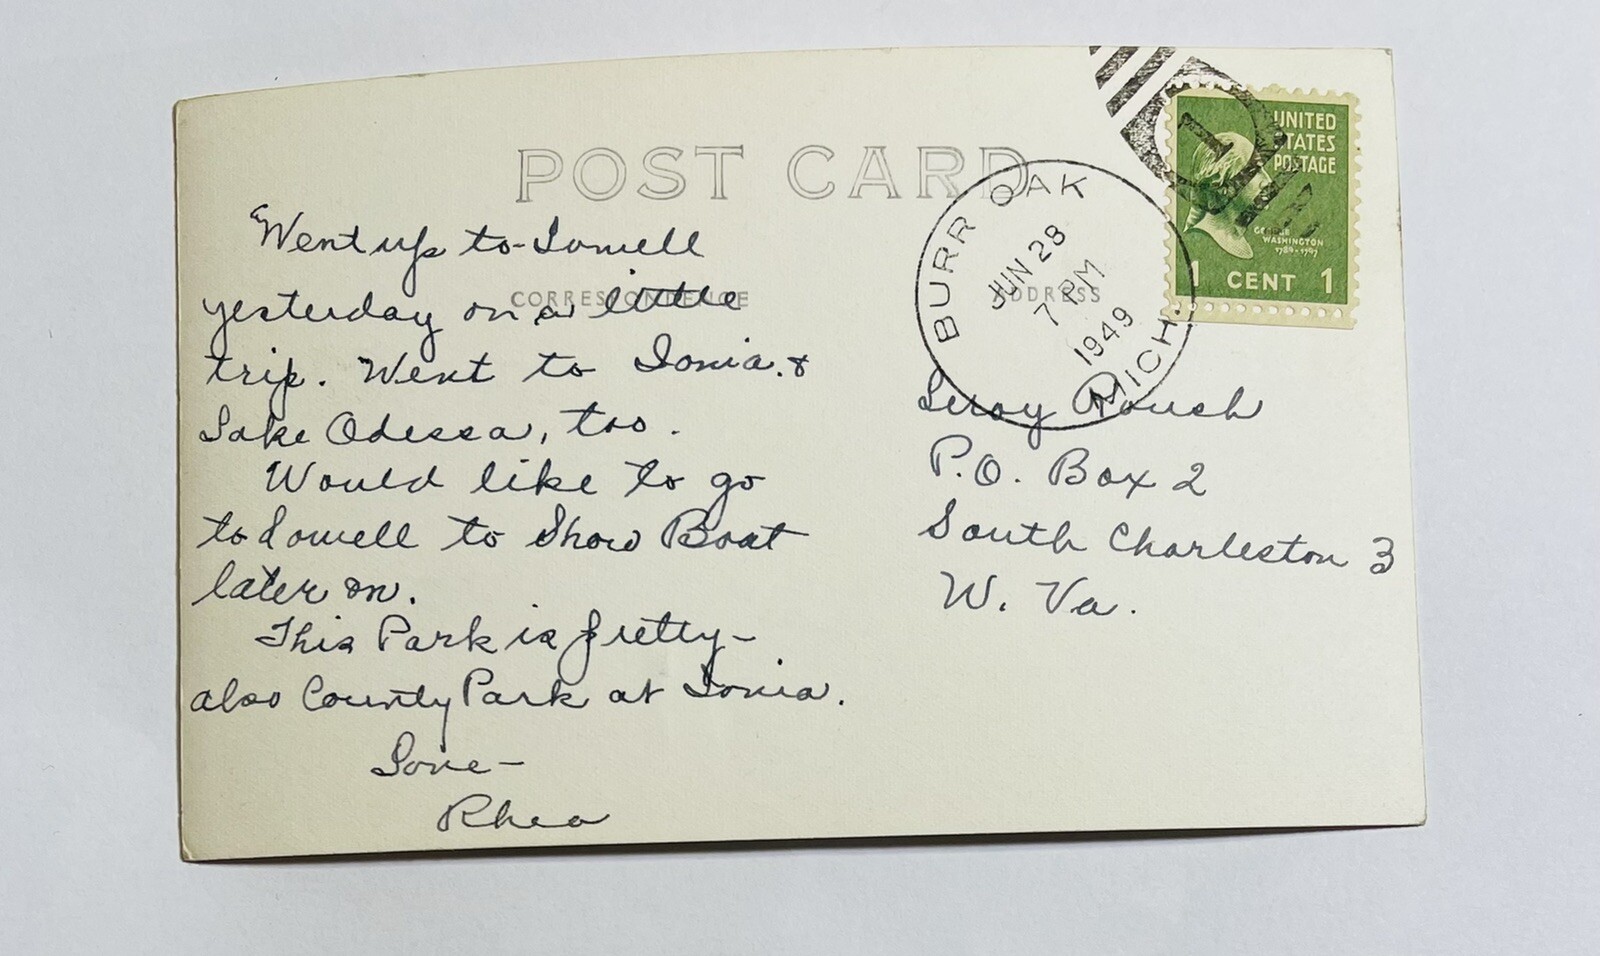 POST CARD
CORRESPONDENCE
ADDRESS
BURR OAK
MICH.
JUN 28
7 PM
1949
UNITED
STATES
POSTAGE
GEORGE
WASHINGTON
1789-1797
1 CENT 1
Went up to Lowell
yesterday on a little
trip. Went to Ionia &
Lake Odessa, too.
Would like to go
to Lowell to Show Boat
later on.
This Park is pretty-
also County Park at Ionia.
Love-
Rhea
Leroy Roush
P.O. Box 2
South Charleston 3
W. Va.